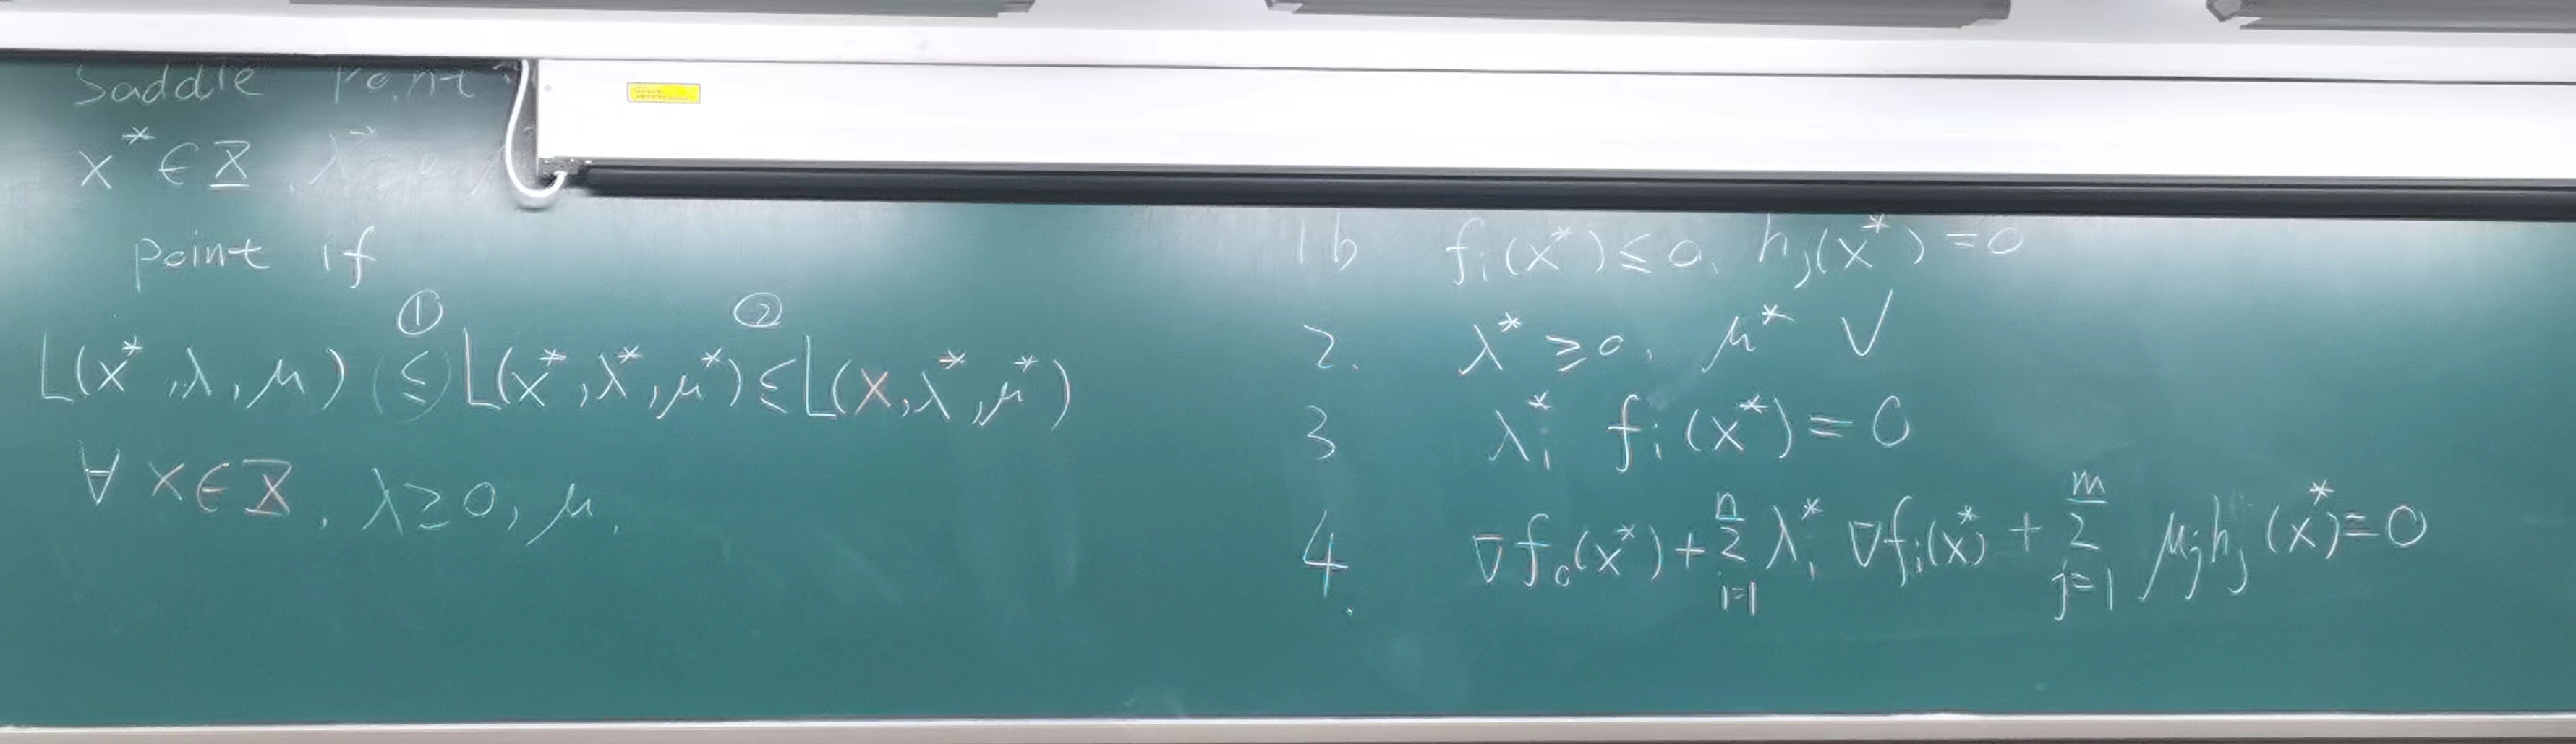 Saddle point
x* ∈ X, λ* ≥ 0
point if
① ②
L(x*, λ, μ) (≤) L(x*, λ*, μ*) ≤ L(x, λ*, μ*)
∀ x ∈ X, λ ≥ 0, μ.
1b f_i(x*) ≤ 0, h_j(x*) = 0
2. λ* ≥ 0, μ* √
3 λ_i* f_i(x*) = 0
4. ∇f_0(x*) + Σ_{i=1}^{n} λ_i* ∇f_i(x*) + Σ_{j=1}^{m} μ_j h_j(x*) = 0